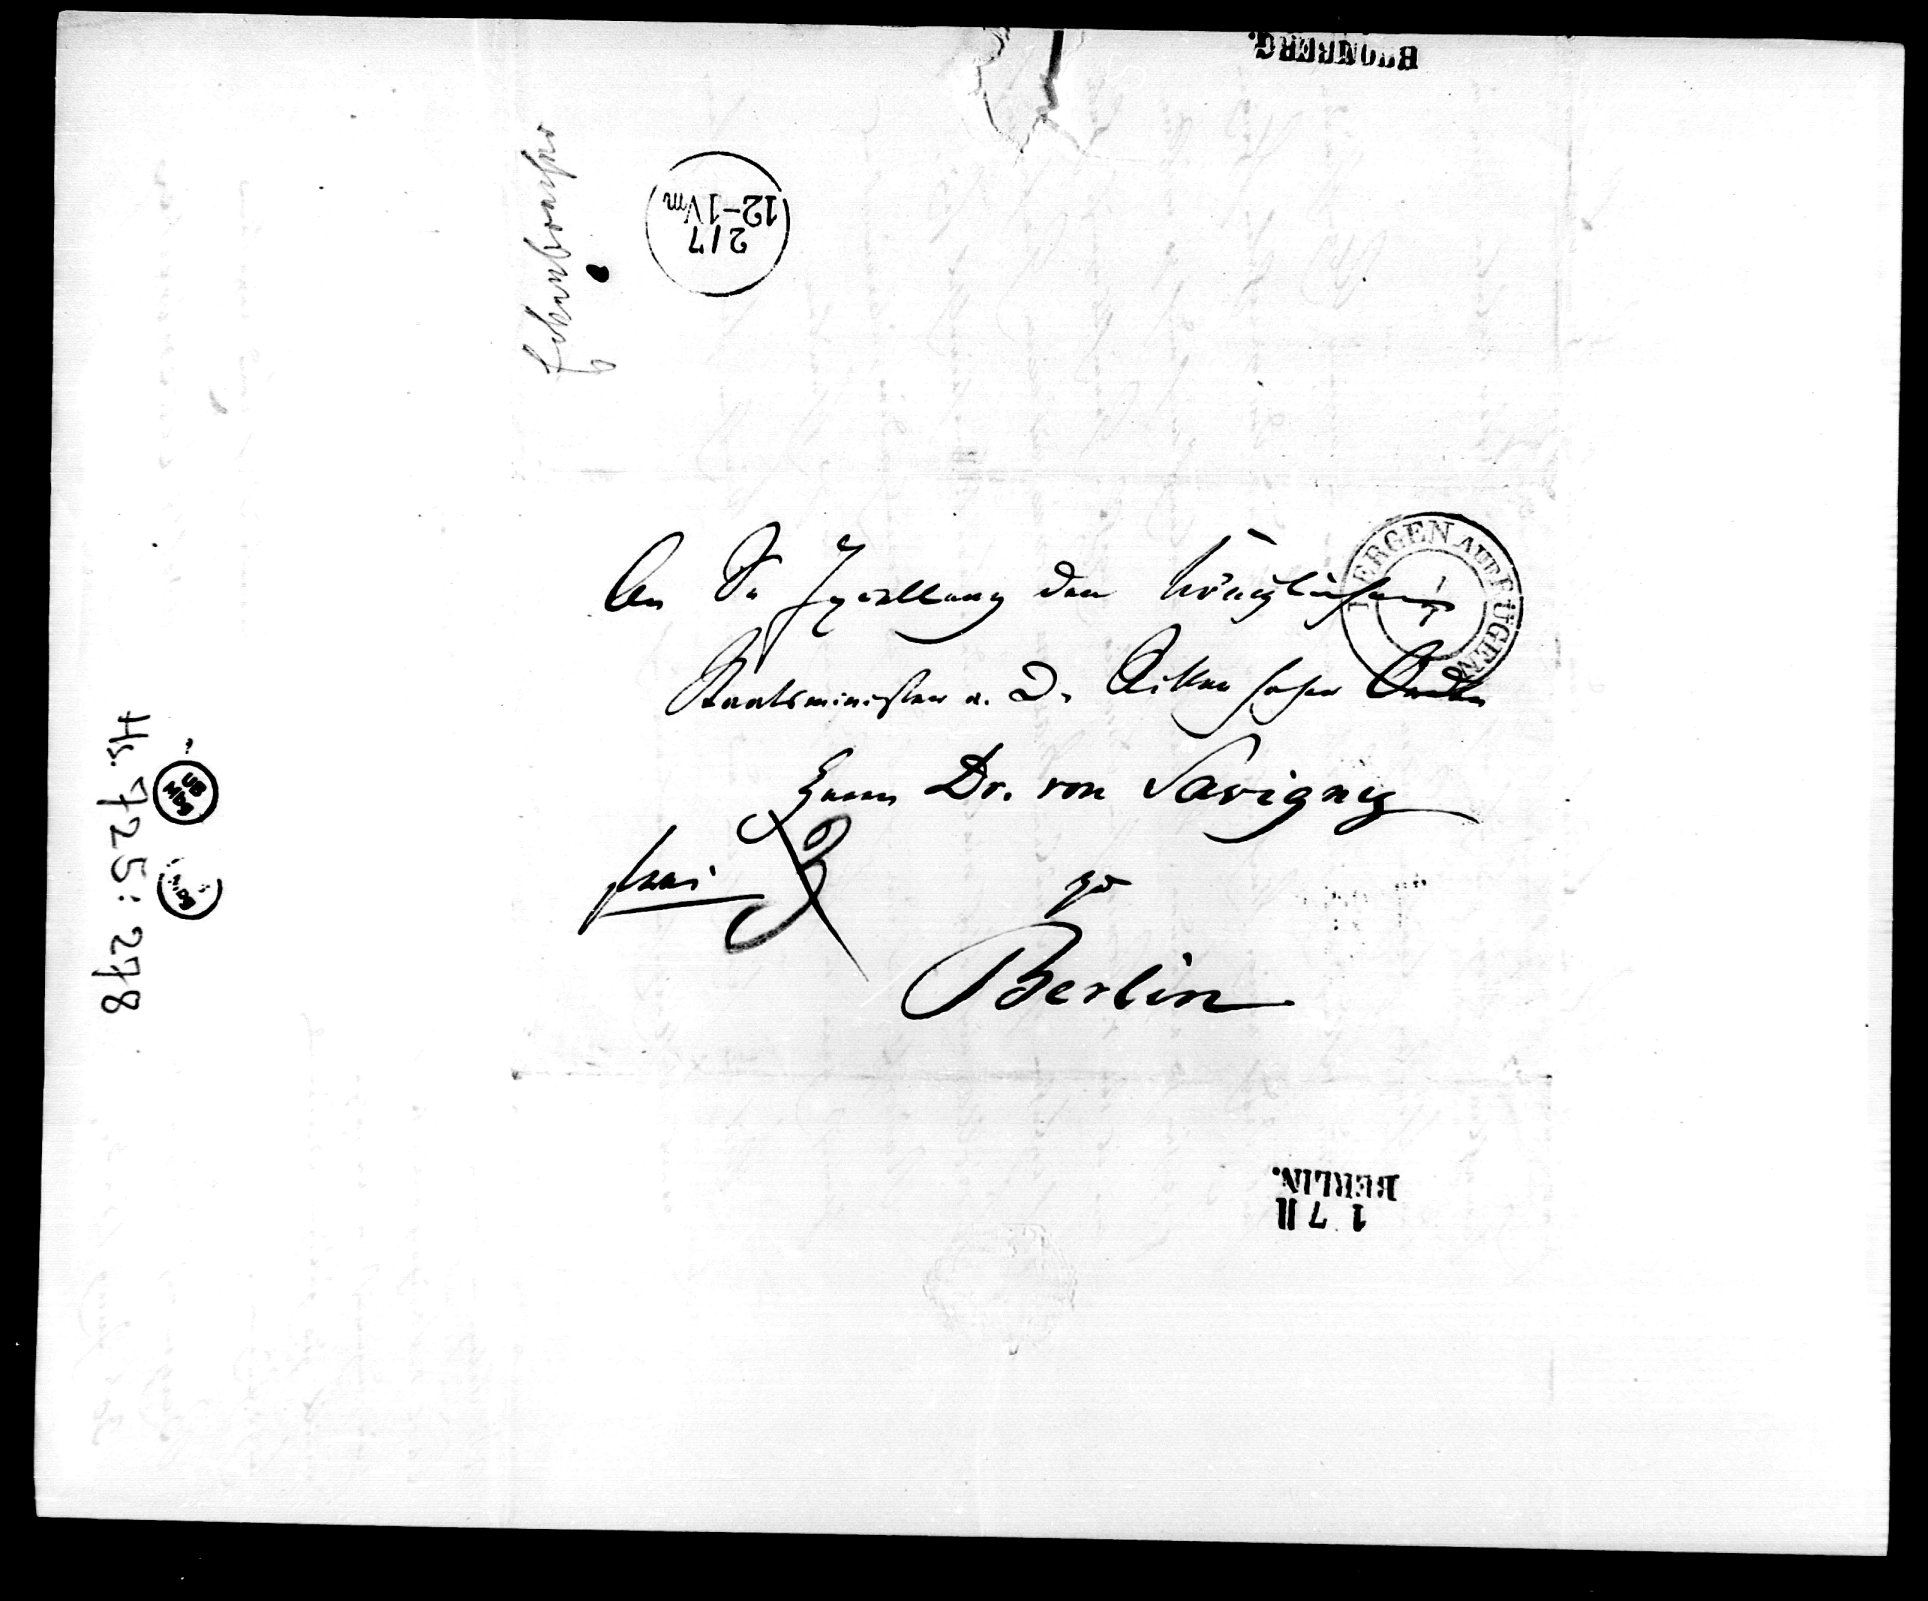 BROMBERG.
2/7
12-1 Vm
An Se Excellenz den Königlichen
BERGEN AUF RÜGEN
1/7
Staatsminister a. D. Ritter hoher Orden
Herrn Dr. von Savigny
frei
3
zu
Berlin
BERLIN.
1 7 II
Hs. 725: 278